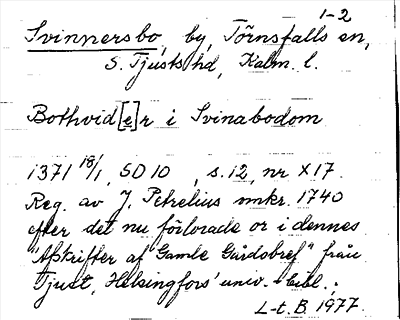 1-2
Svinnersbo, by, Törnsfalls sn,
S. Tjusts hd, Kalm. l.
Bothvid[e]r i Svinabodom
1371 18/1, SD 10, s. 12, nr X 17.
Reg. av J. Petrelius omkr. 1740
efter det nu förlorade or i dennes
"Afskrifter af Gamle Gårdsbref" från
Tjust, Helsingfors' univ.-bibl.;
L-t. B. 1977.